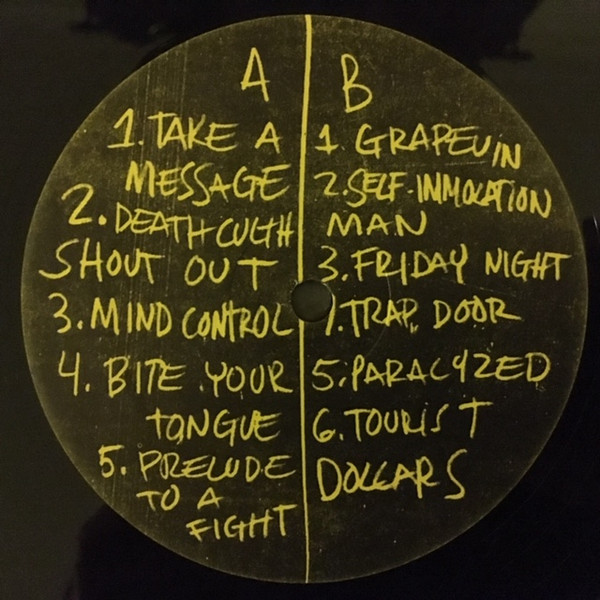 A
1. TAKE A
MESSAGE
2. DEATH CULTH
SHOUT OUT
3. MIND CONTROL
4. BITE YOUR
TONGUE
5. PRELUDE
TO A
FIGHT
B
1. GRAPEVIN
2. SELF-IMMOLATION
MAN
3. FRIDAY NIGHT
TRAP DOOR
5. PARALYZED
6. TOURIST
DOLLARS